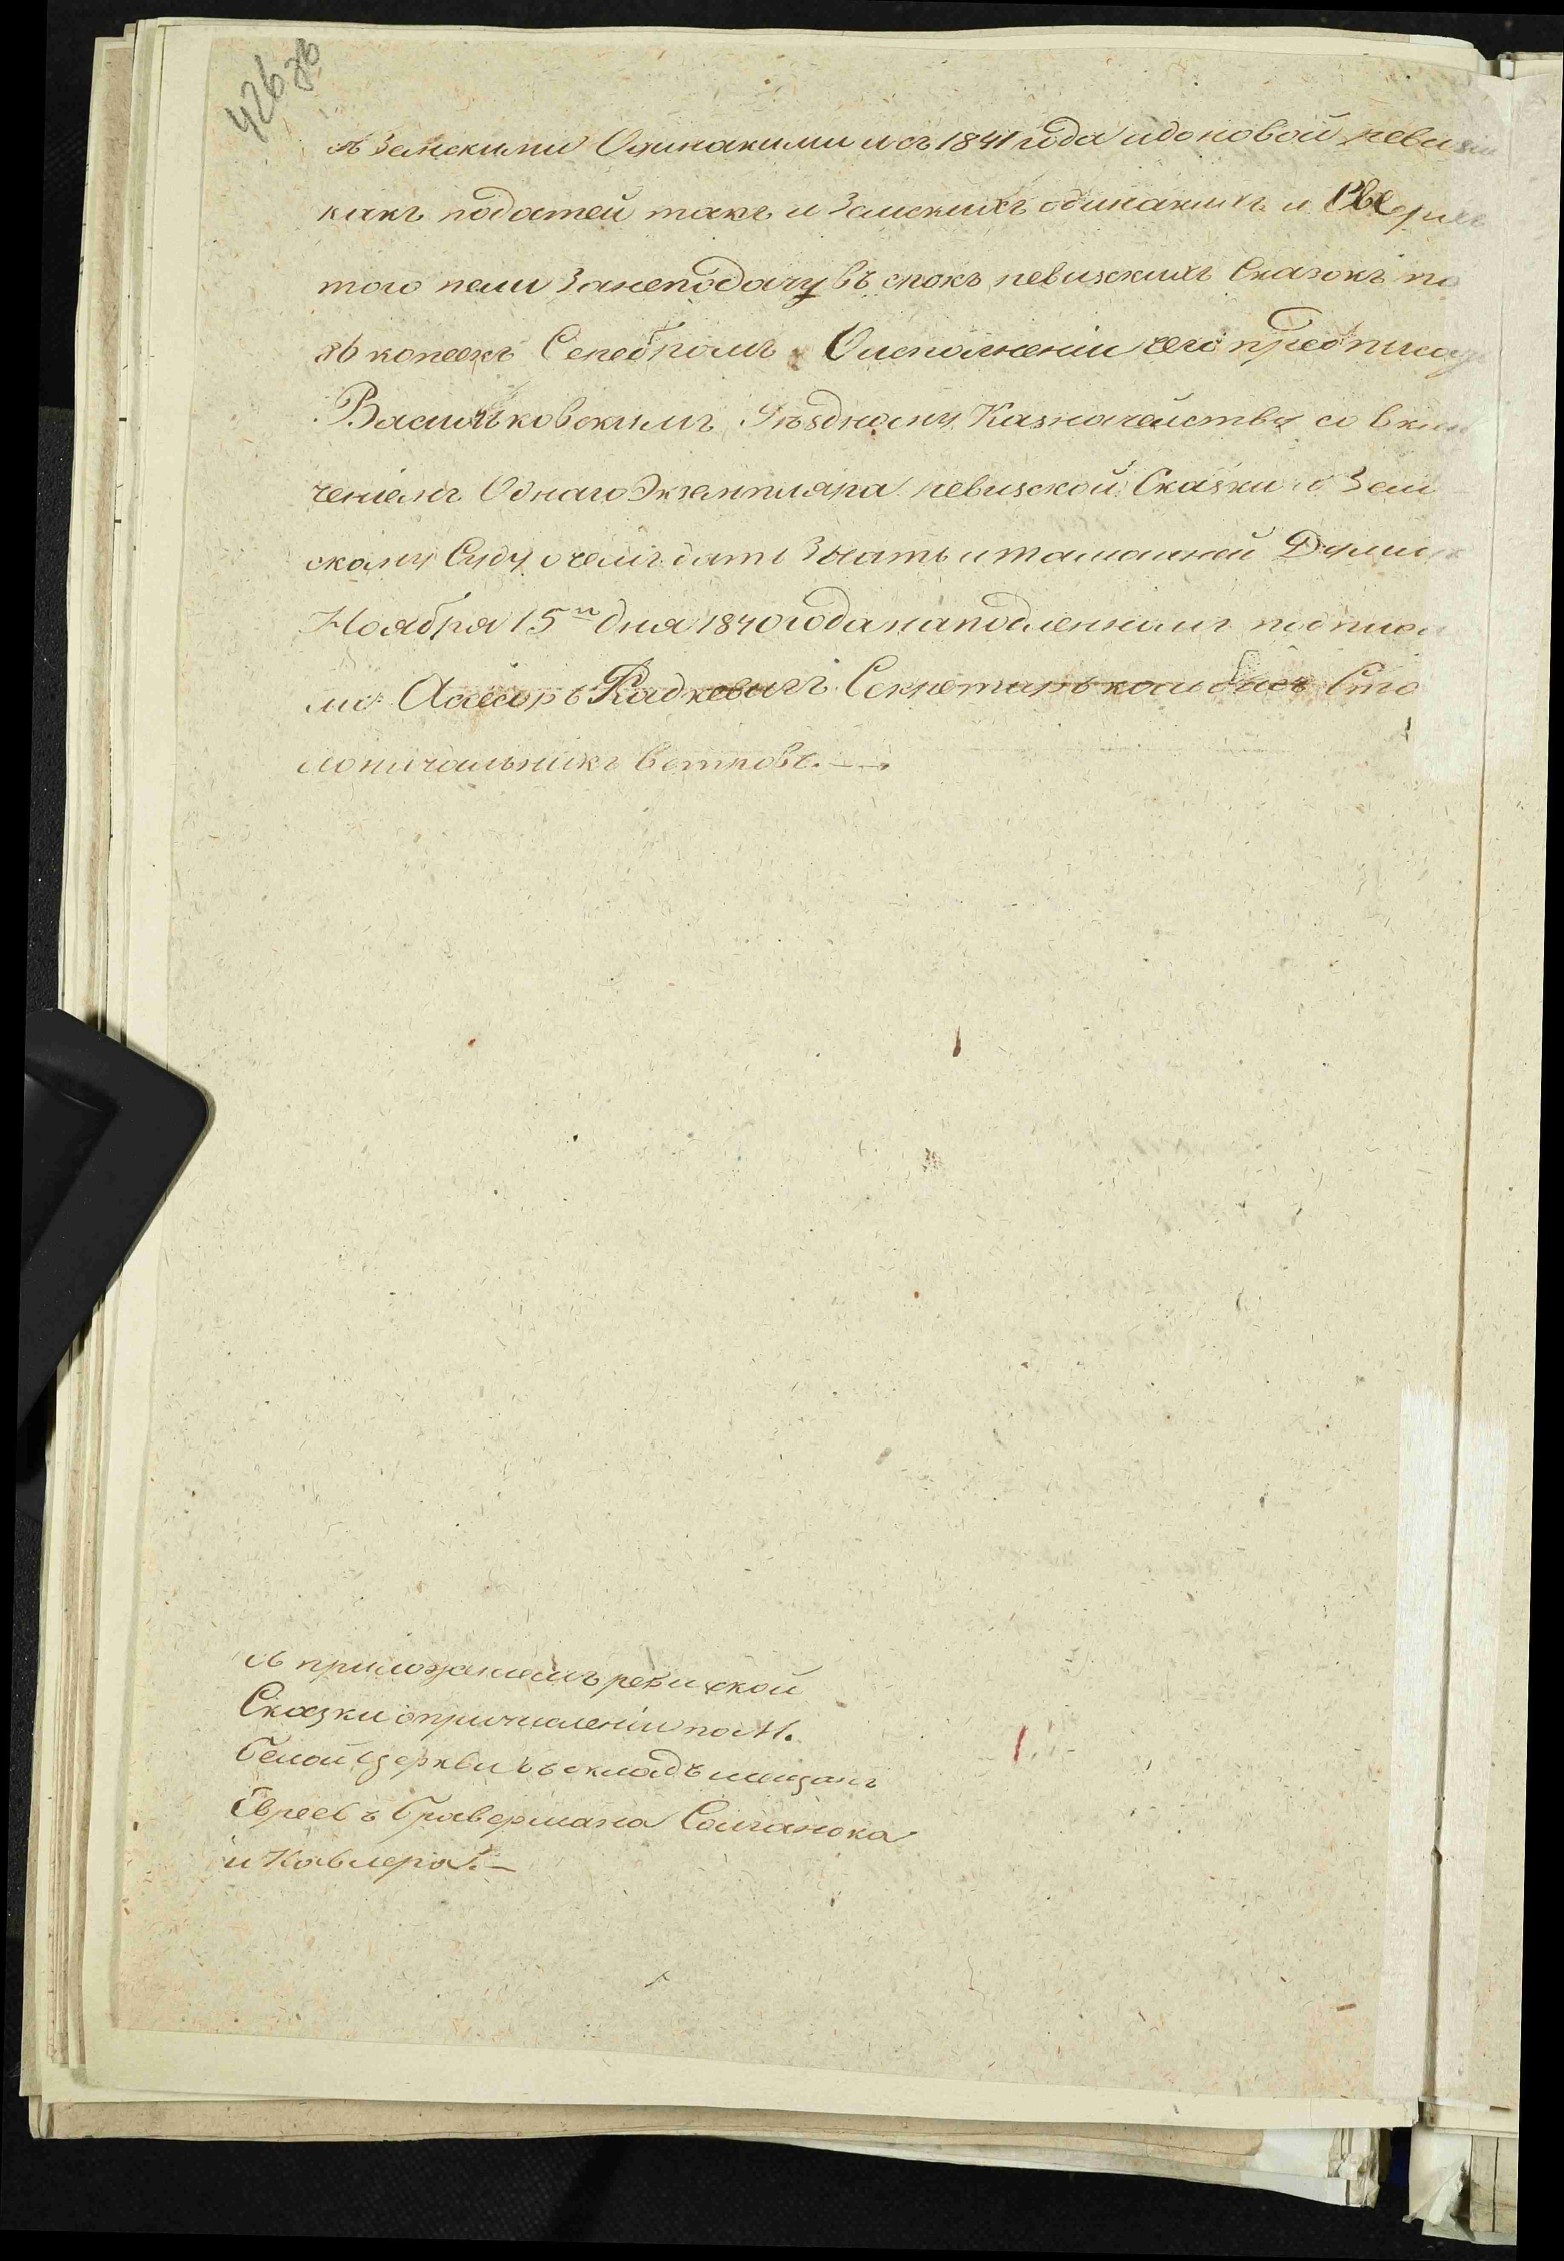 426 об
съ Земскими Одинакими и съ 1841 года и до новой реви зіи
какъ податей такъ и Земскихъ одинакихъ и Сверхъ
того пени Занеподачу въ срокъ ревизскихъ Сказокъ по
86 копеекъ Серебромъ. Оисполненіи чего предписать
Васильковскимъ Уѣздному Казначейству со вклю
ченіемъ Однаго Экземпляра ревизской Сказки и Зем
скому Суду о чемъ дать Знать и тамошней Думѣ
Ноября 15го дня 1840 года наподленномъ подписа
ли: Ассесоръ Радкевичъ Секретарь Сто
лоначальникъ Ветровъ.—
Съ приложеніемъ ревизской
Сказки опричисленіи по М.
белой Церкви въ окладъ мещанъ
Евреевъ бравермана Солганока
и Кавлера.—